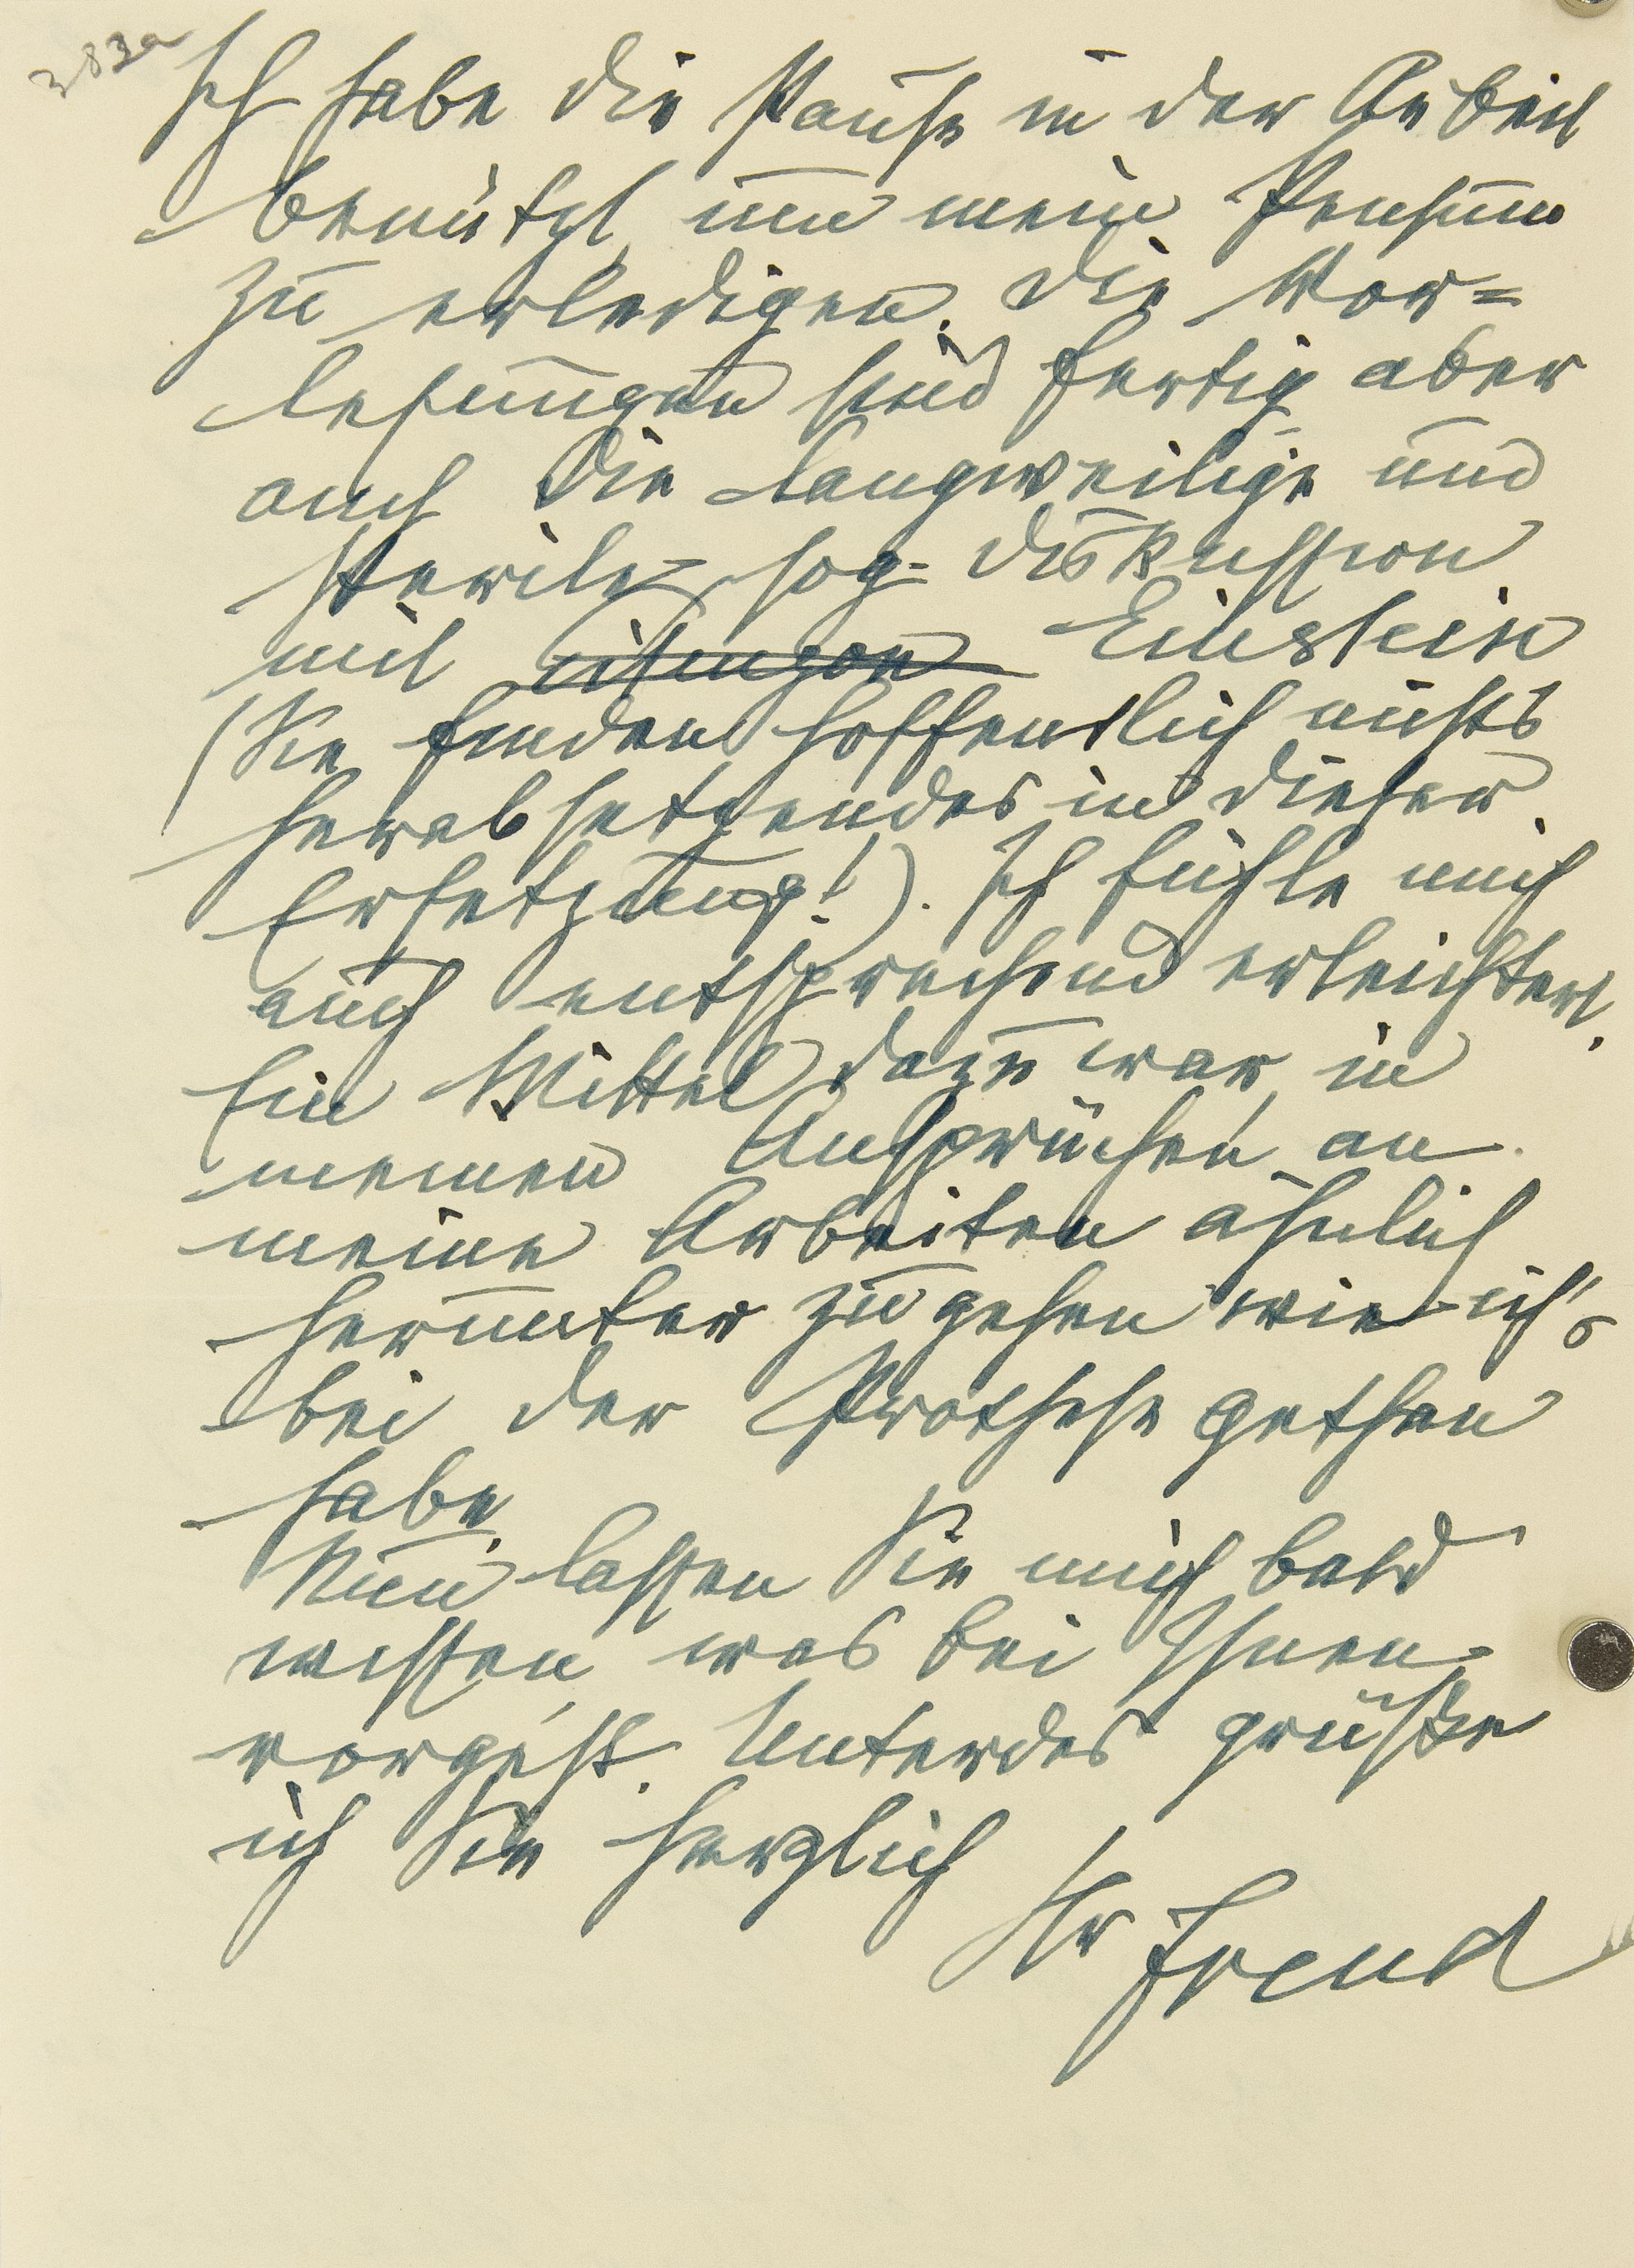 383a
Ich habe die Pause in der Arbeit
benützt, um mein Pensum
zu erledigen. Die Vor=
lesungen sind fertig aber
auch die langweilige und
sterile sog. Diskussion
mit Eitingon Einstein
(Sie finden hoffentlich nichts
herabsetzendes in dieser
Ersetzung!). Ich fühle mich
auch entsprechend erleichtert.
Ein Mittel dazu war, in
meinen Ansprüchen an
meine Arbeiten ähnlich
herunter zu gehen wie ich's
bei der Prothese gethan
habe.
Nun lassen Sie mich bald
wissen, was bei Ihnen
vorgeht. Unterdes grüße
ich Sie herzlich
Ihr Freud